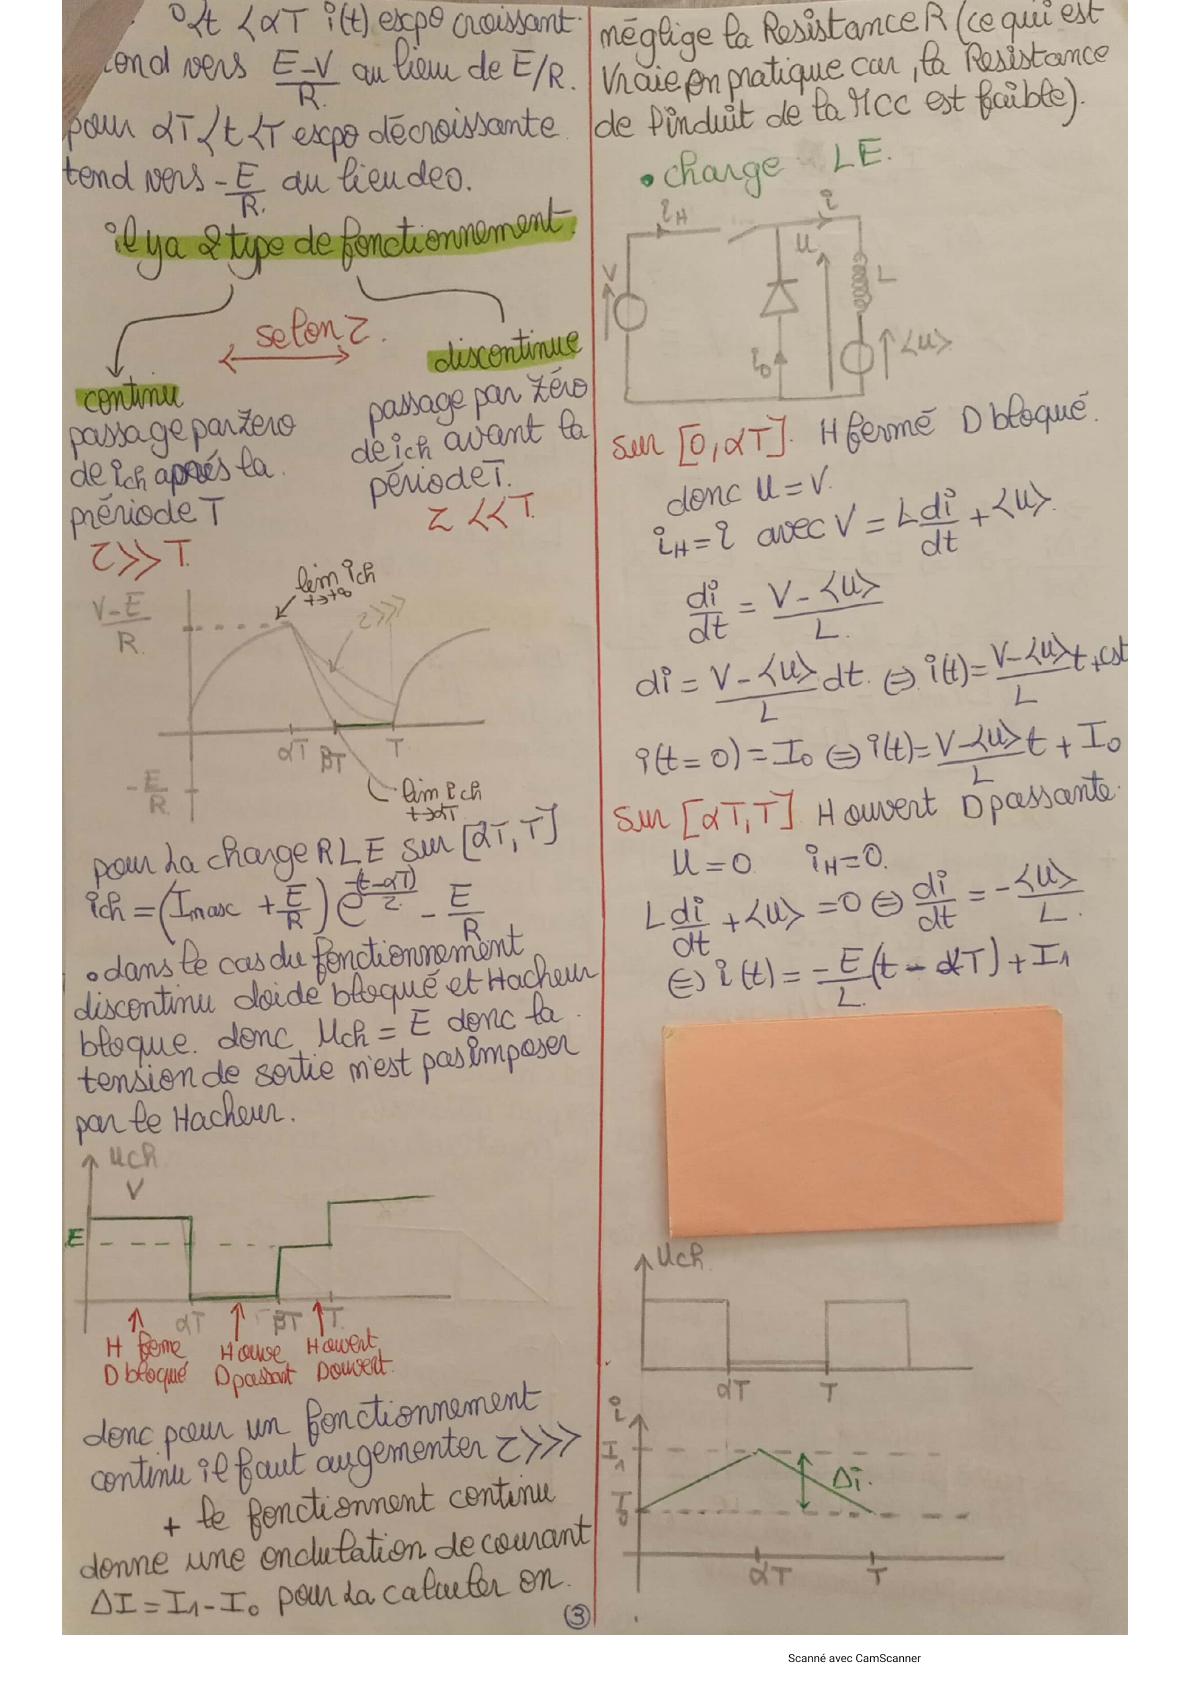 0<t<αT i(t) expo croissant.
tend vers E-V/R au lieu de E/R.
pour αT<t<T expo décroissante
tend vers -E/R au lieu de 0.
il ya 2 type de fonctionnement.
selon τ.
continu
passage par zero
de ich aprés la
prériode T
τ>>T.
discontinue
passage par Zéro
de ich avant la
période T.
τ<<T.
V-E/R
lim ich
t→+∞
τ>>>
αT βT T
-E/R
lim ich
t→αT
pour la charge RLE sur [αT,T]
ich = (Imax + E/R) e^(t-αT)/τ - E/R
• dans le cas du fonctionnement
discontinu doide bloqué et Hacheur
bloque. donc Uch = E donc la
tension de sortie n'est pas imposer
par le Hacheur.
Uch
V
E
αT βT T
H ferme
D bloqué
H ouve
D passant
H ouvert
D ouvert
donc pour un fonctionnement
continu il faut augementer τ>>>
+ le fonctionnent continu
donne une ondulation de courant
ΔI = I1 - I0 pour la calculer on.
3
néglige la Resistance R (ce qui est
Vraie en pratique car, la Resistance
de l'induit de la MCC est faible).
• charge LE.
iH i
V u L
iD <u>
sur [0,αT]. H fermé D bloqué.
donc u = V.
iH = i avec V = L di/dt + <u>.
di/dt = V - <u>/L.
di = V - <u>/L dt. ⇔ i(t) = V - <u>/L t + cst
i(t=0) = I0 ⇔ i(t) = V - <u>/L t + I0
Sur [αT,T] H ouvert D passante.
u = 0 iH = 0.
L di/dt + <u> = 0 ⇔ di/dt = - <u>/L.
⇔ i(t) = - E/L (t - αT) + I1
Uch
αT T
i
I1
Δi.
I0
αT T
Scanné avec CamScanner